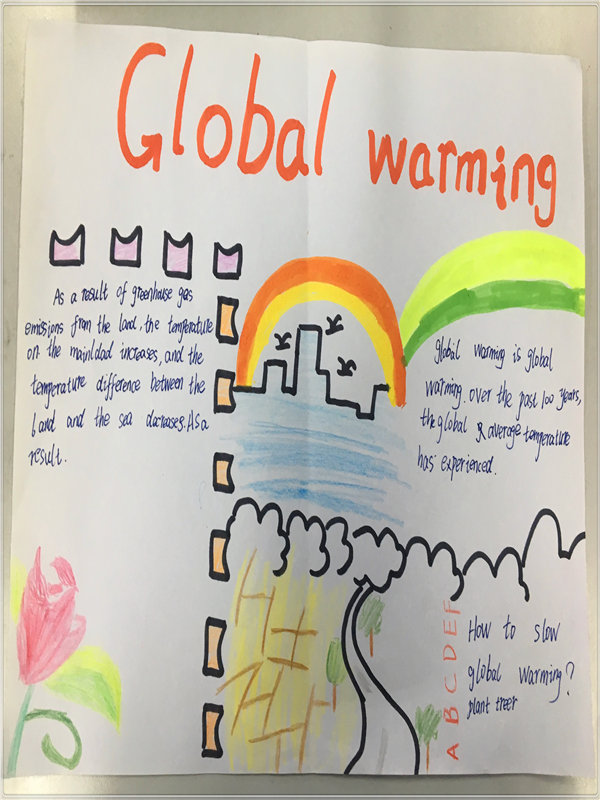 Global warming
As a result of greenhouse gas
emissions from the land, the temperature
on the mainldad increases, and the
temperature difference between the
land and the sea decreases. As a
result.
globil warming is global
warming. over the past 100 years,
the global & average temperature
has experienced.
ABCDEF
How to slow
global warming?
plant treer